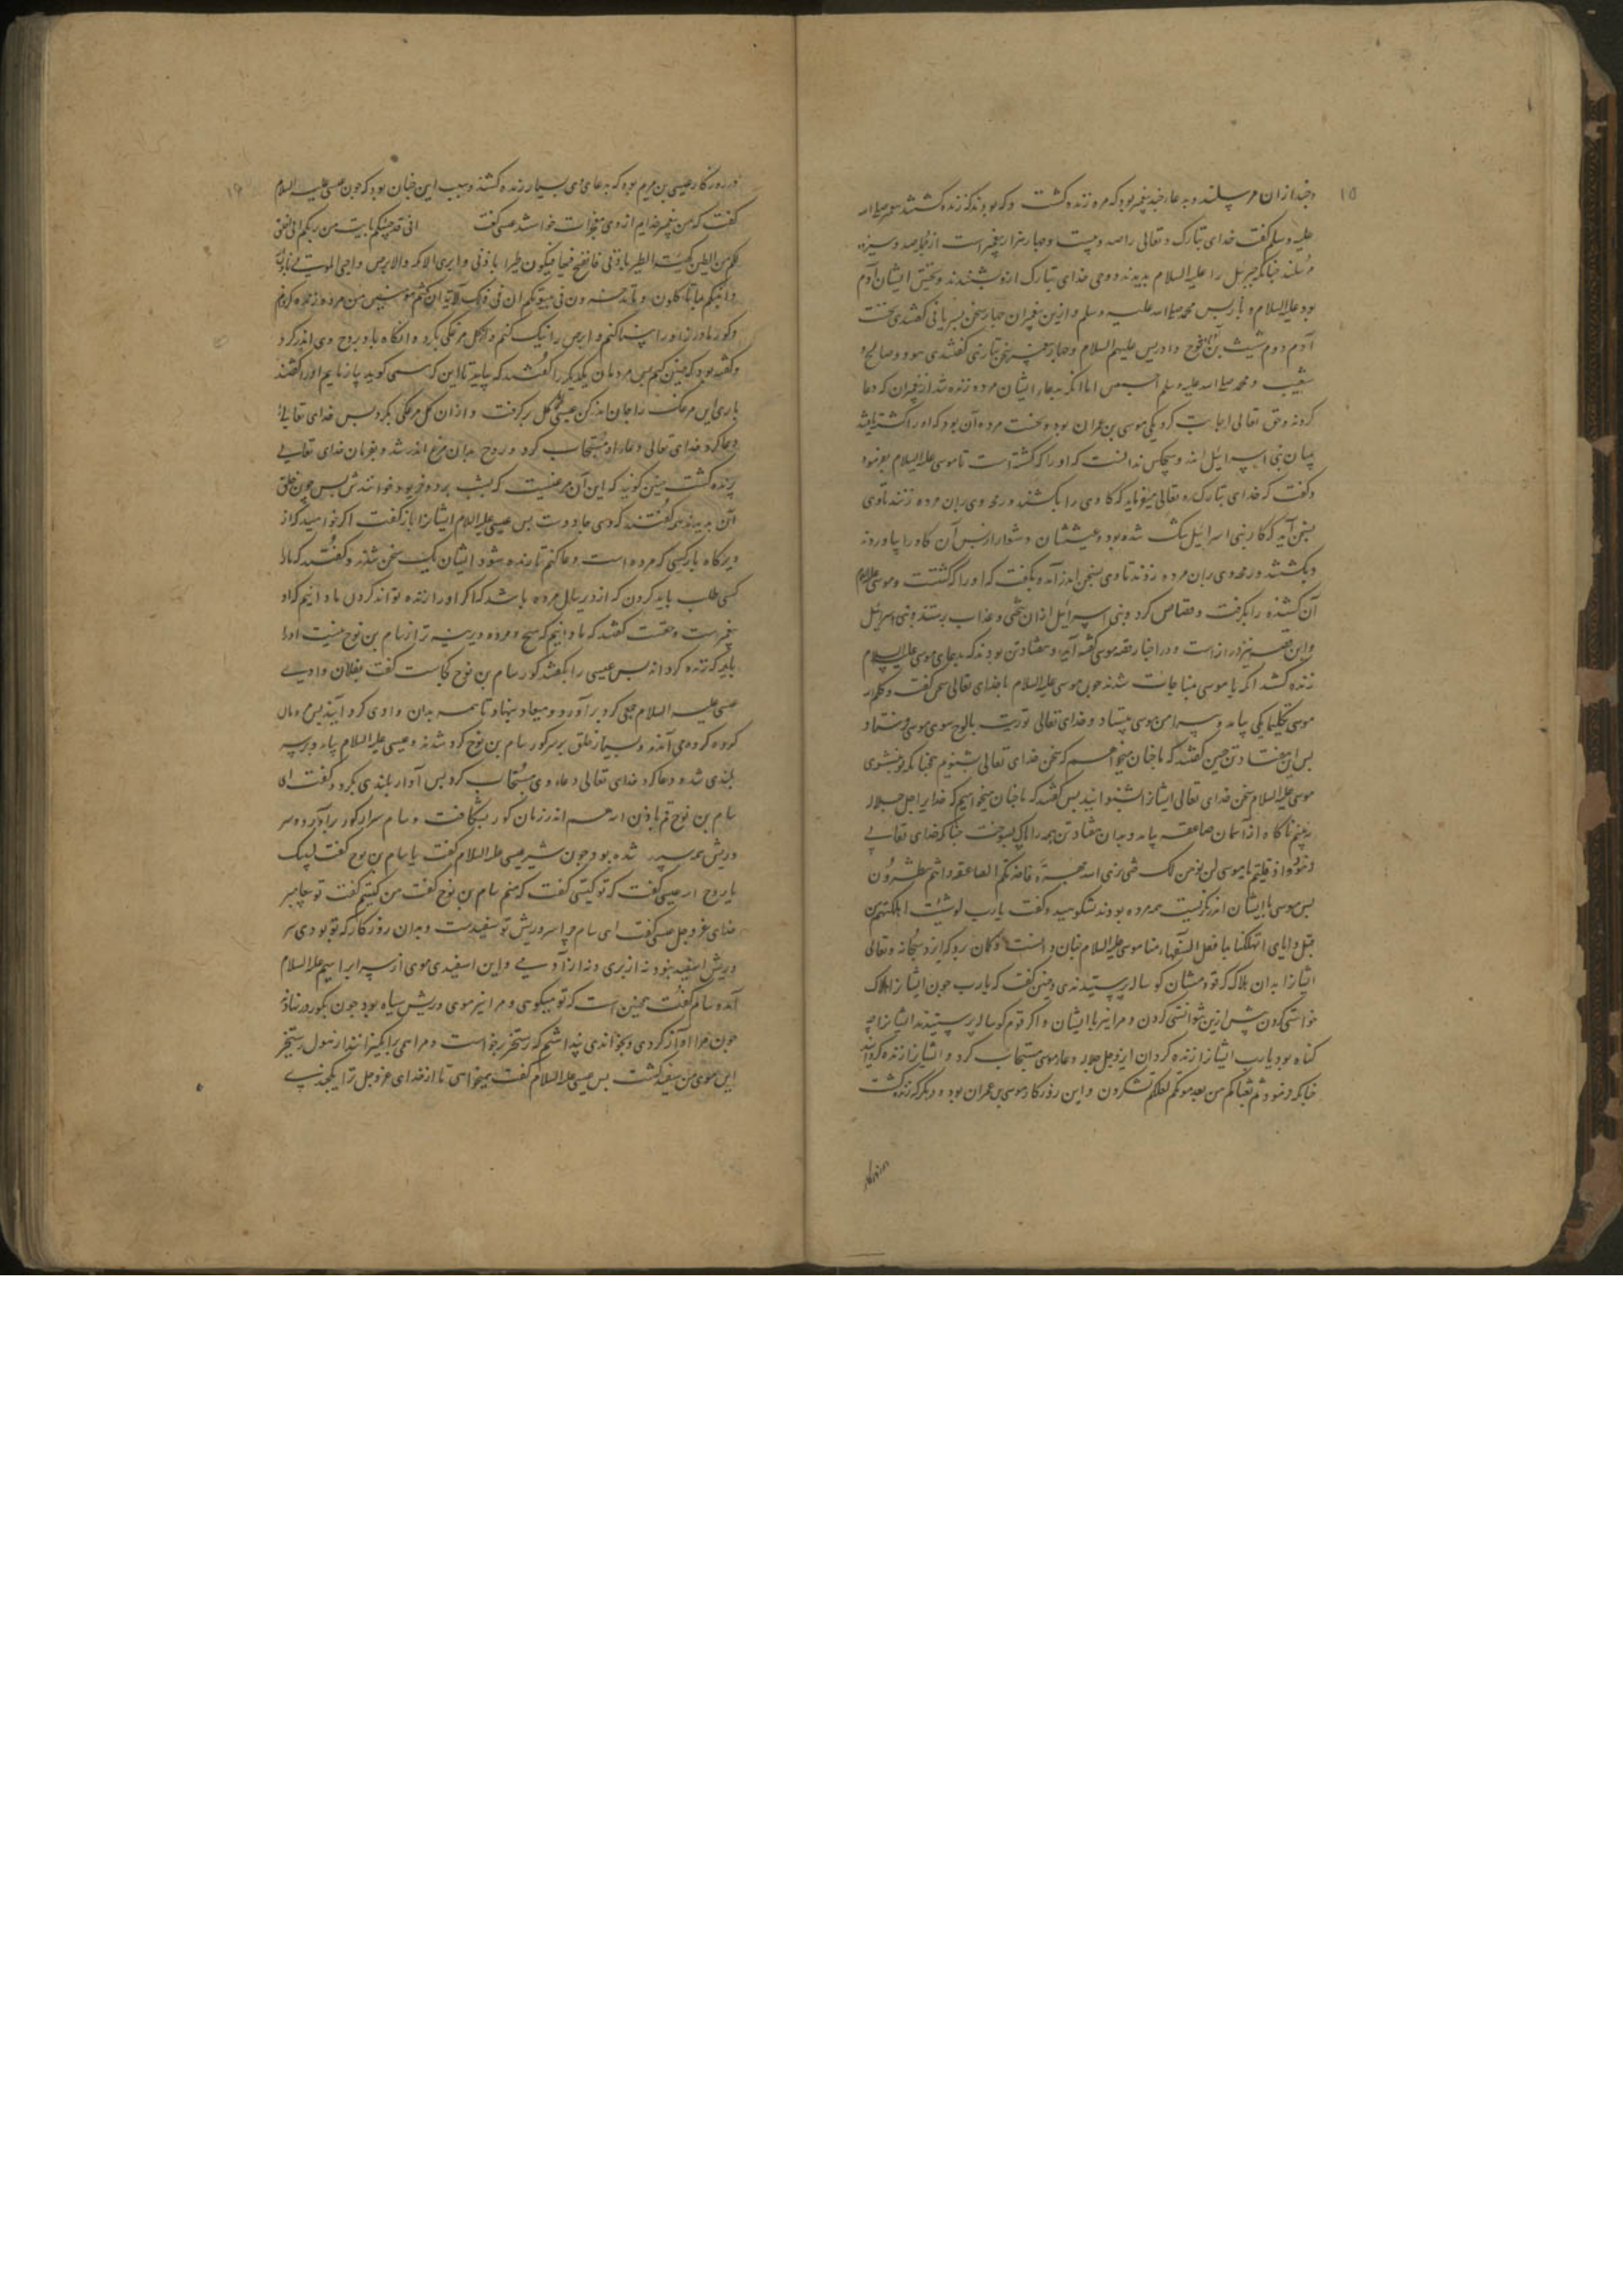 ۱۵
و چند از ان مرسلند و به دعاء چند پیغمبر بود که مرده زنده کشت و که بودند که زنده کشتند پیغمبر صلی الله
علیه و سلم کفت خدای تبارک و تعالی را صد و بیست و چهار هزار پیغمبر است از جمله سیصد و سیزده
مرسلند چنانکه جبرئیل را علیه السلام بدیدند و وحی خدای تبارک ازو بشنیدند و نخستین ایشان آدم
بود علیه السلام و بازپس محمد صلی الله علیه و سلم و ازین پیغمبران چهار سخن بسریانی کفتندی نخست
آدم دوم شیث نوح و ادریس علیهم السلام و چهار سخن بتازی کفتندی هود و صالح و
شعیب و محمد صلی الله علیه و سلم اجمعین اما انکه بدعاء ایشان مرده زنده شد از پیغمبران که دعا
کردند و حق تعالی اجابت کرد یکی موسی بن عمران بود و نخست مرده آن بود که او را کشته یافتند
میان بنی اسرائیل اند و هیچکس ندانست که او را که کشته است تا موسی علیه السلام بفرمود
و کفت که خدای تبارک و تعالی میفرماید که کاوی را بکشند و بران مرده زنند تا وی
بسخن آید که کار بنی اسرائیل تنک شده بود و عیششان دشوار از پس آن کاو را بیاوردند
و بکشتند و بران مرده زدند تا وی بسخن اندر آمد و بکفت که او را که کشت و موسی علیه السلام
آن کشنده را بکرفت و قصاص کرد و بنی اسرائیل از ان سختی و عذاب برستند و بنی اسرائیل
و این قصه دراز است و در اخبار قصه موسی کفته آید و هفتاد تن بودند که بدعای موسی علیه السلام
زنده کشتند انکه با موسی بمناجات شدند چون موسی علیه السلام با خدای تعالی سخن کفت و کلم الله
موسی تکلیما یکی بیامد و پیرامن موسی بیستاد و خدای تعالی توریت بالوح سوی موسی فرستاد
پس این هفتاد تن چنین کفتند که ما چنان میخواهیم که سخن خدای تعالی بشنویم همچنانکه تو بشنوی
موسی علیه السلام سخن خدای تعالی ایشانرا بشنوانید پس کفتند که ما چنان میخواهیم که خدایرا جل جلاله
ببینیم ناکاه از آسمان صاعقه بیامد و بدان هفتاد تن همه را پاک بسوخت چنانکه خدای تعالی
فرمود و اذ قلتم یا موسی لن نومن لک حتی نری الله جهرة فاخذتکم الصاعقة و انتم تنظرون
پس موسی بایشان اندر نکریست همه مرده بودند و کفت یا رب لو شئت اهلکتهم من
قبل و ایای اتهلکنا بما فعل السفهاء منا موسی علیه السلام چنان دانست و کمان برد که ایزد سبحانه و تعالی
ایشانرا بدان هلاک کرد که قومشان کوساله پرستیدندی و چنین کفت که یا رب چون ایشانرا هلاک
خواستی کردن پیش ازین توانستی کردن و مرا نیز با ایشان و اکر قوم کوساله پرستیدند ایشانرا چه
کناه بود یا رب ایشانرا زنده کردان ایزد جل جلاله دعاء موسی مستجاب کرد و ایشانرا زنده کردانید
چنانکه فرمود ثم بعثناکم من بعد موتکم لعلکم تشکرون و این روزکار موسی بن عمران بود و دیکر که زنده کشت
در روزکار
۱۶
در روزکار عیسی بن مریم بود که بدعای وی بسیار زنده کشتند و سبب این چنان بود که چون عیسی علیه السلام
کفت که من پیغمبر خدایم از وی معجزات خواستند عیسی کفت انی قد جئتکم بآیة من ربکم انی اخلق
لکم من الطین کهیئة الطیر باذنی فانفخ فیها فیکون طیرا باذنی و ابری الاکمه و الابرص و احیی الموتی باذن الله
و انبئکم بما تاکلون و ما تدخرون فی بیوتکم ان فی ذلک لآیة ان کنتم مومنین من مرده زنده کردنم
و کور مادرزاد را بینا کنم و ابرص را نیک کنم و از کل مرغکی بکرد و انکاه باد بروح وی اندر کرد
و کفته بود که چنین کنم پس مردمان یکدیکر را کفتند که بیایید تا این که عیسی کوید بیازماییم او را کفتند
باری این مرغک را جان اندر کن عیسی کل برکرفت و از ان کل مرغکی بکرد پس خدای تعالی را
دعا کرد خدای تعالی دعاء او مستجاب کرد و روح بدان مرغ اندر شد و بفرمان خدای تعالی
پرنده کشت چنین کویند که این آن مرغیست که بشب پرد و خوانندش پس چون خلق
آن بدیدند کفتند که وی جادوست پس عیسی علیه السلام ایشانرا باز کفت اکر خواهید که از
دیرکاه باز کسی که مرده است دعا کنم تا زنده شود ایشان یک سخن شدند و کفتند که ما را
کسی طلب باید کردن که از دیر سال مرده باشد که اکر او را زنده تواند کردن ما دانیم که او
پیغمبر است و حقست کفتند که ما دانیم که هیچ مرده دیرینه تر از سام بن نوح نیست او را
باید که زنده کرداند پس عیسی را بکفتند کور سام بن نوح کجاست کفت بفلان وادی
عیسی علیه السلام برآورد و میعاد بنهاد تا همه بدان وادی کرد آیند پس مردمان
کروه کروه می آمدند و بسیار خلق بر سر کور سام بن نوح کرد شدند و عیسی علیه السلام بیامد و بر سر
بلندی شد و دعا کرد خدای تعالی دعاء وی مستجاب کرد پس آواز بلندی بکرد و کفت ای
سام بن نوح قم باذن الله هم اندر زمان کور بشکافت و سام سر از کور برآورد و سر
و ریش همه سپید شده بود چون عیسی علیه السلام کفت یا سام بن نوح کفت لبیک
یا روح الله عیسی کفت که تو کیستی کفت که منم سام بن نوح کفت من کیستم کفت تو پیامبر
خدای عز و جل عیسی کفت ای سام چرا سر و ریش تو سفیدست و بدان روزکار که تو بودی سر
و ریش اسفید نبود نه از پری و نه از آدمی و این اسفیدی موی از پس ابراهیم علیه السلام
آمد سام کفت همچنین است که تو میکوی و مرا نیز موی و ریش سیاه بود چون بکور در نهادند
چون مرا آواز کردی و بخواندی پنداشتم که رستخیز برخواست و مرا همی برانکیزانند از هول رستخیز
این موی من سفید کشت پس عیسی علیه السلام کفت میخواهی تا از خدای عز و جل ترا